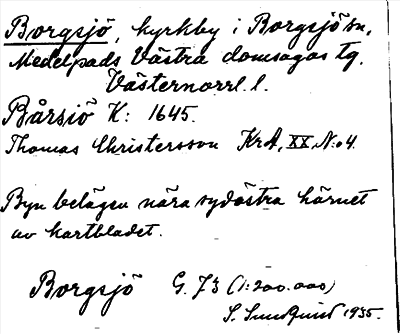 Borgsjö, kyrkby i Borgsjö sn,
Medelpads Västra domsagas tg.
Västernorrl. l.
Bårsiö K: 1645.
Thomas Christersson KrA, XX, N:o 4.
Byn belägen nära sydöstra hörnet
av kartbladet.
Borgsjö G. 73 (1:200.000)
S. Sundquist 1935.